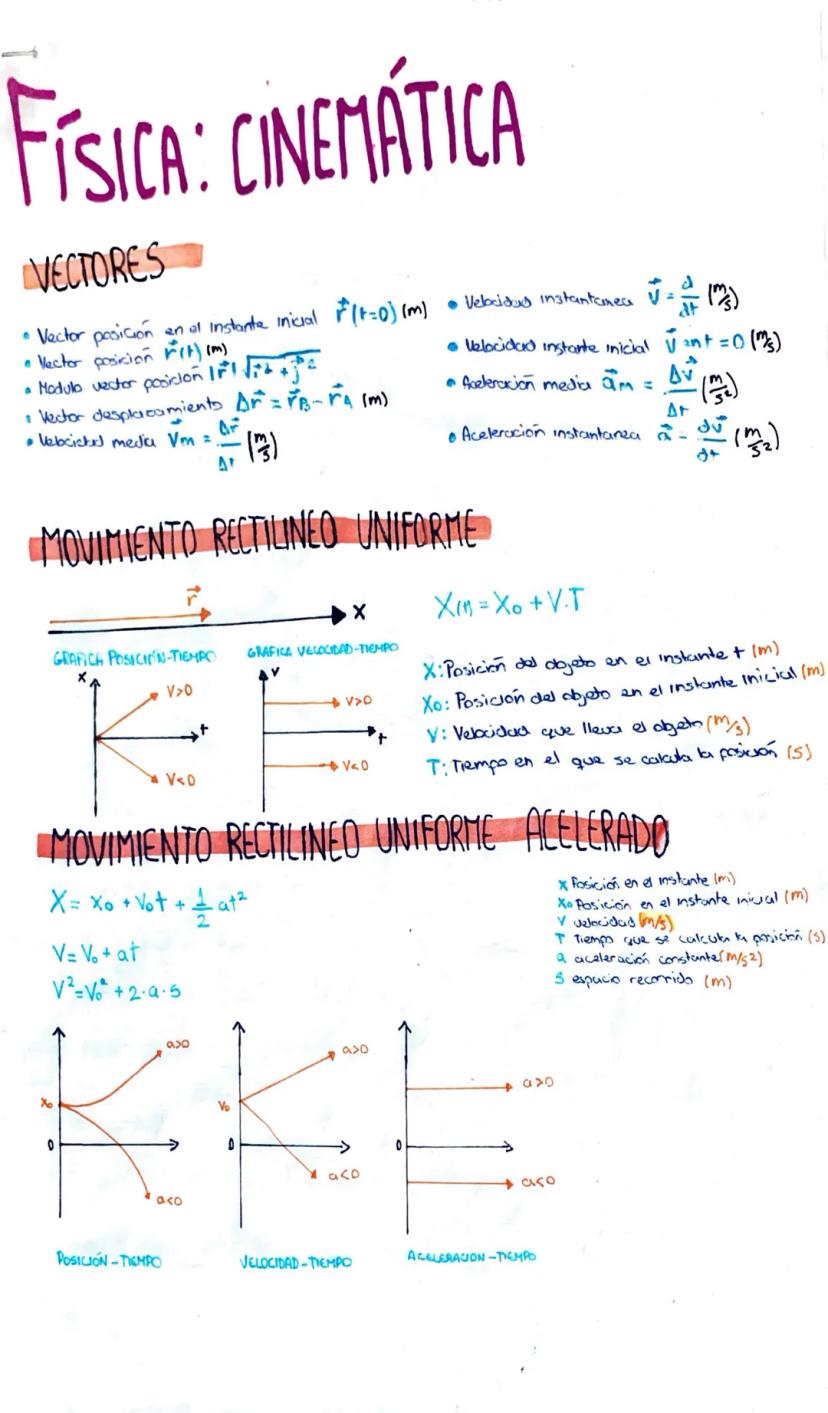 FÍSICA: CINEMÁTICA
VECTORES
• Vector posición en el instante inicial r⃗(t=0) (m)
• Vector posición r⃗(t) (m)
• Modulo vector posición |r⃗| √i⃗² + j⃗²
• Vector desplazamiento Δr⃗ = r⃗B - r⃗A (m)
• Velocidad media V⃗m = Δr⃗/Δt (m/s)
• Velocidad instantanea V⃗ = d/dt (m/s)
• Velocidad instante inicial V⃗ en t = 0 (m/s)
• Aceleración media a⃗m = Δv⃗/Δt (m/s²)
• Aceleración instantanea a⃗ = dv⃗/dt (m/s2)
MOVIMIENTO RECTILINEO UNIFORME
r⃗
X
X(t) = X₀ + V.T
GRAFICA POSICIÓN-TIEMPO
GRAFICA VELOCIDAD-TIEMPO
x
V>0
t
V<0
v
V>0
t
V<0
X: Posición del objeto en el instante t (m)
Xo: Posición del objeto en el instante inicial (m)
V: Velocidad que lleva el objeto (m/s)
T: Tiempo en el que se calcula la posición (s)
MOVIMIENTO RECTILINEO UNIFORME ACELERADO
X = x₀ + V₀t + 1/2 at²
V = V₀ + at
V² = V₀² + 2·a·s
X Posición en el instante (m)
Xo Posición en el instante inicial (m)
V velocidad (m/s)
T Tiempo que se calcula la posición (s)
a aceleración constante (m/s2)
S espacio recorrido (m)
a>0
X₀
0
a<0
a>0
V₀
0
a<0
a>0
0
a<0
POSICIÓN - TIEMPO
VELOCIDAD - TIEMPO
ACELERACION - TIEMPO